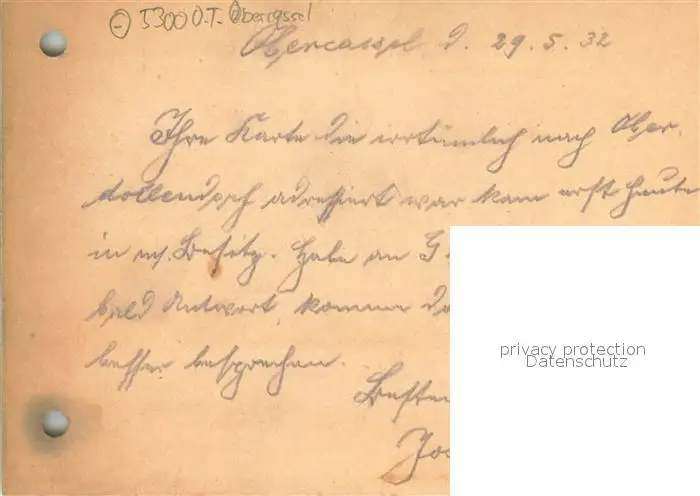 5300 O.T. Oberkassel
Obercassel d. 29.5.32
Ihre Karte die irrtümlich nach Ober-
dollendorf adressiert war kam erst heute
in m. Besitz. Habe an G
bald Antwort, komme
besser besprechen.
Besten
privacy protection
Datenschutz